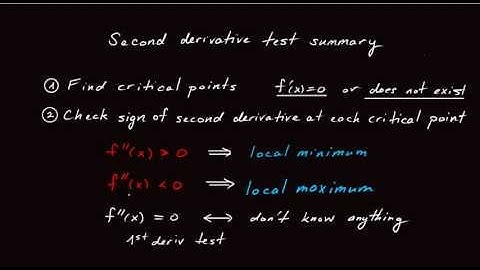 Second derivative test summary
① Find critical points f'(x)=0 or does not exist
② Check sign of second derivative at each critical point
f"(x) > 0 ⇒ local minimum
f"(x) < 0 ⇒ local maximum
f"(x) = 0 ↔ don't know anything
1st deriv test